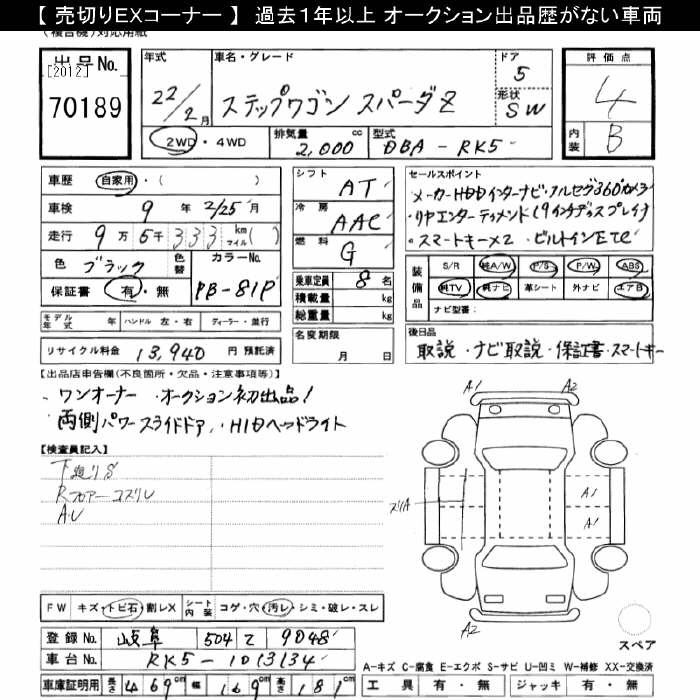 【 売切りEXコーナー 】 過去１年以上 オークション出品歴がない車両
(複合機)対応用紙
出品No.
[2012]
70189
年式
22/2月
車名・グレード
ステップワゴン スパーダZ
ドア
5
形状
SW
評価点
4
内装
B
2WD・4WD
排気量
2,000 cc
型式
DBA - RK5
車歴 自家用・( )
車検 9年 2/25月
走行 9万5千333 km マイル( )
色 ブラック
色替
カラーNo.
PB-81P
保証書 有・無
シフト AT
冷房 AAC
燃料 G
乗車定員 8名
積載量 kg
総重量 kg
セールスポイント
・メーカーHDDインターナビ・フルセグ360°カメラ
・リヤエンターテイメント(9インチディスプレイ付
・スマートキー×2 ・ビルトインETC
装備品
S/R 純A/W P/S P/W ABS
純TV 純ナビ 革シート 外ナビ エアB
ナビ型番:
モデル年式 年 ハンドル 左・右 ディーラー・並行
リサイクル料金 13,940 円 預託済
名変期限
月 日
後日品
取説・ナビ取説・保証書・スマートキー
【出品店申告欄(不良箇所・欠品・注意事項等)】
・ワンオーナー ・オークション初出品!
・両側パワースライドドア ・HIDヘッドライト
【検査員記入】
下廻りS
Rフロアーコスリ
AU
A1 A2
スリA
A1
A1
A2
FW キズ・トビ石・割レX
シート内装 コゲ・穴・汚レ・シミ・破レ・スレ
登録No. 岐阜 504 て 9048
車台No. RK5-1013134
車庫証明用 長さ 469cm 幅 169cm 高さ 181cm
スペア
A-キズ C-腐食 E-エクボ S-サビ U-凹ミ W-補修 XX-交換済
工具 有・無 ジャッキ 有・無